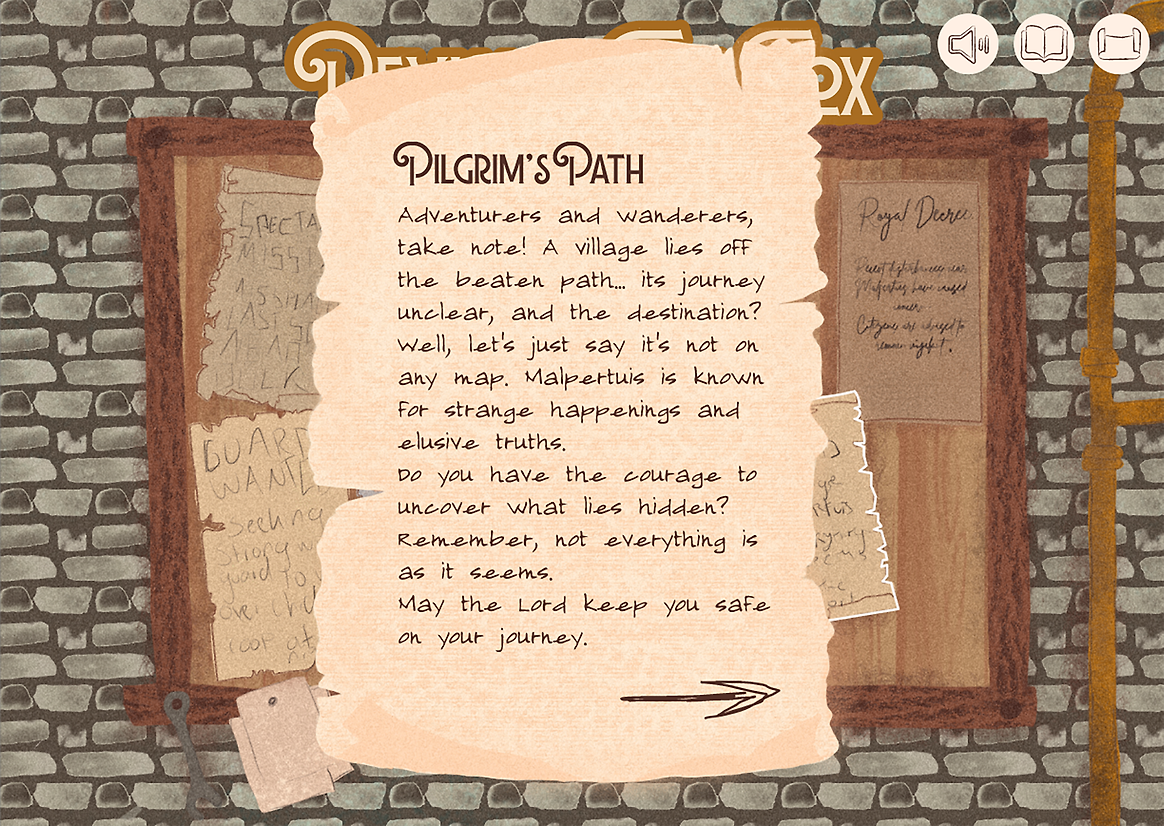 Pilgrim's Path
Adventurers and wanderers,
take note! A village lies off
the beaten path... its journey
unclear, and the destination?
Well, let's just say it's not on
any map. Malpertuis is known
for strange happenings and
elusive truths.
Do you have the courage to
uncover what lies hidden?
Remember, not everything is
as it seems.
May the Lord keep you safe
on your journey.
Royal Decree
Malpertuis have caused
Citizens are advised to
GUARD
WANTED
Seeking
strong
guard to